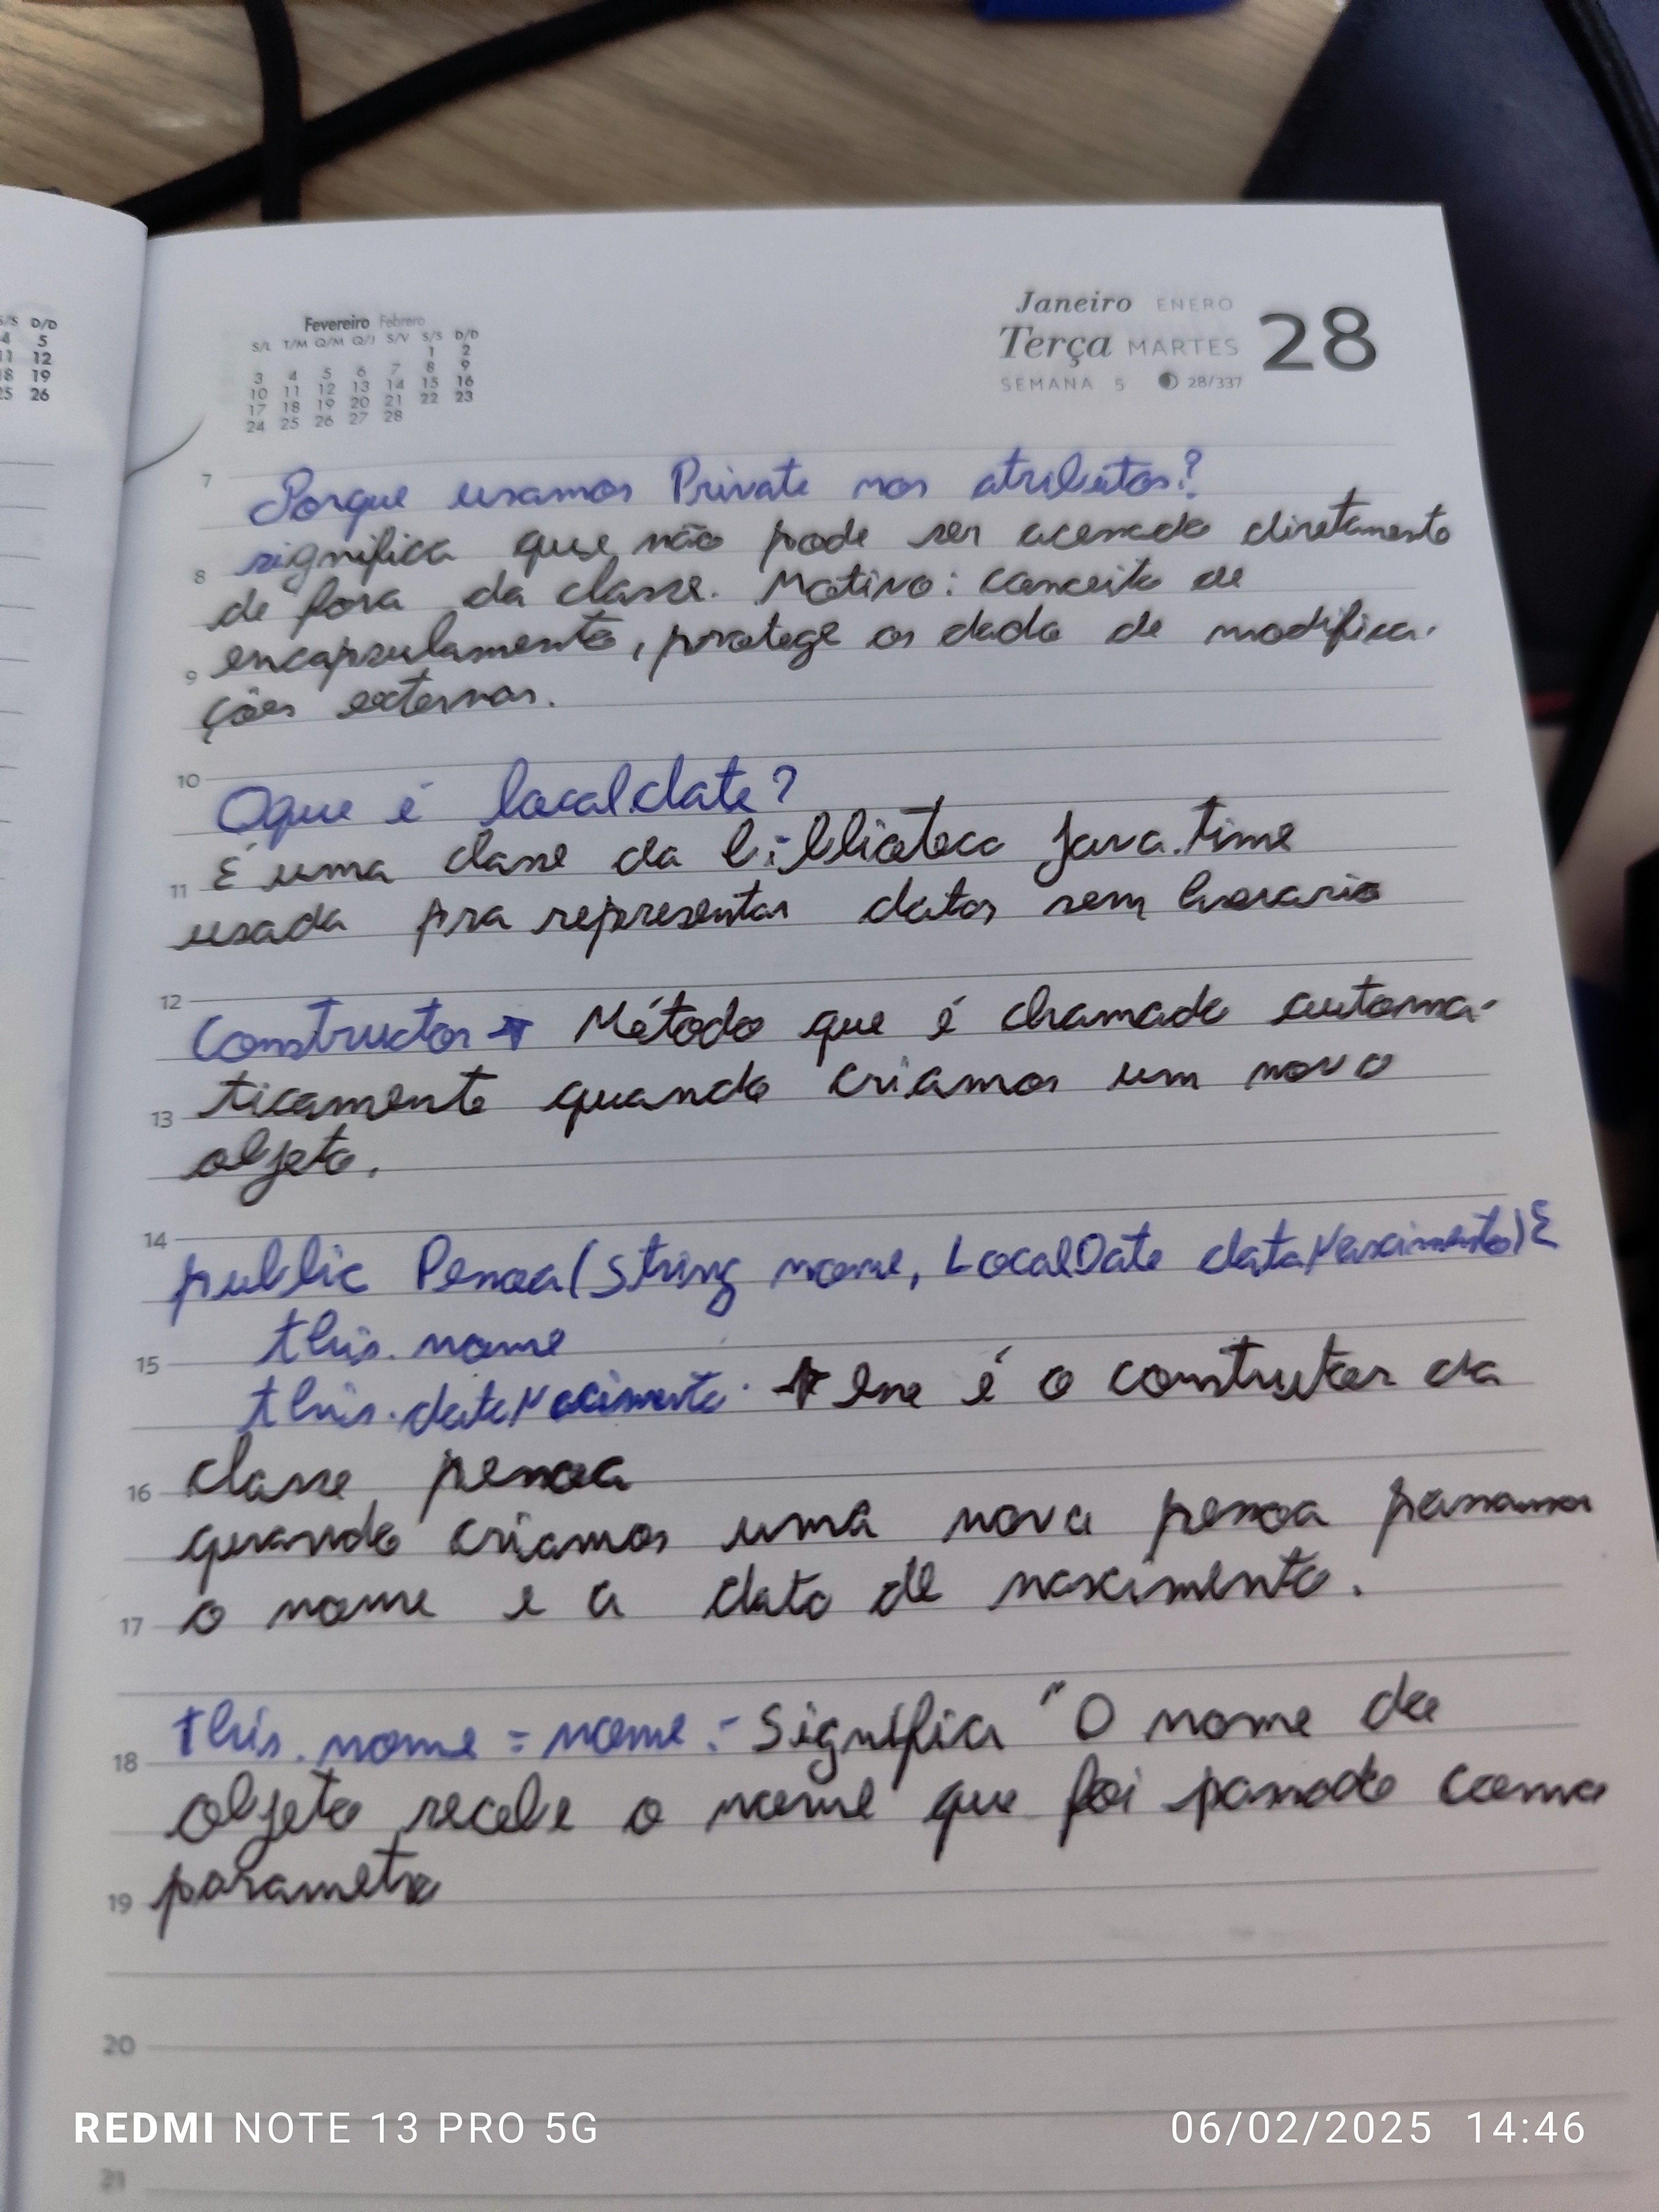 S/S D/D
4 5
11 12
18 19
25 26
Fevereiro Febrero
S/L T/M Q/M Q/J S/V S/S D/D
1 2
3 4 5 6 7 8 9
10 11 12 13 14 15 16
17 18 19 20 21 22 23
24 25 26 27 28
Janeiro ENERO
Terça MARTES 28
SEMANA 5 28/337
7 Porque usamos Private nos atributos?
significa que não pode ser acessado diretamente
8 de fora da classe. Motivo: conceito de
9 encapsulamento, protege os dado de modifica-
ções externas.
10 Oque é local.date?
11 É uma classe da biblioteca java.time
usada pra representar datas sem horario
12 Constructor → Método que é chamado automa-
13 ticamente quando criamos um novo
objeto.
14 public Pessoa(String nome, LocalDate dataNascimento){
15 this.nome
this.dataNascimento. → Esse é o construtor da
16 classe pessoa
quando criamos uma nova pessoa passamos
17 o nome e a data de nascimento.
18 this.nome = nome :- Significa "O nome do
objeto recebe o nome que foi passado como
19 parametro
20
21
REDMI NOTE 13 PRO 5G 06/02/2025 14:46